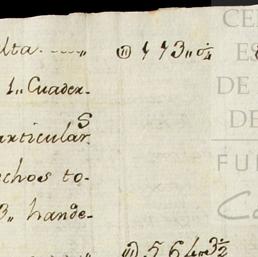 lta....„ ⑪ 773„0½
1„ Cuader-
articulars
chos to-
3„ hande-
⑪ 564„3½
CE
ES
DE
DE
FU
Ca